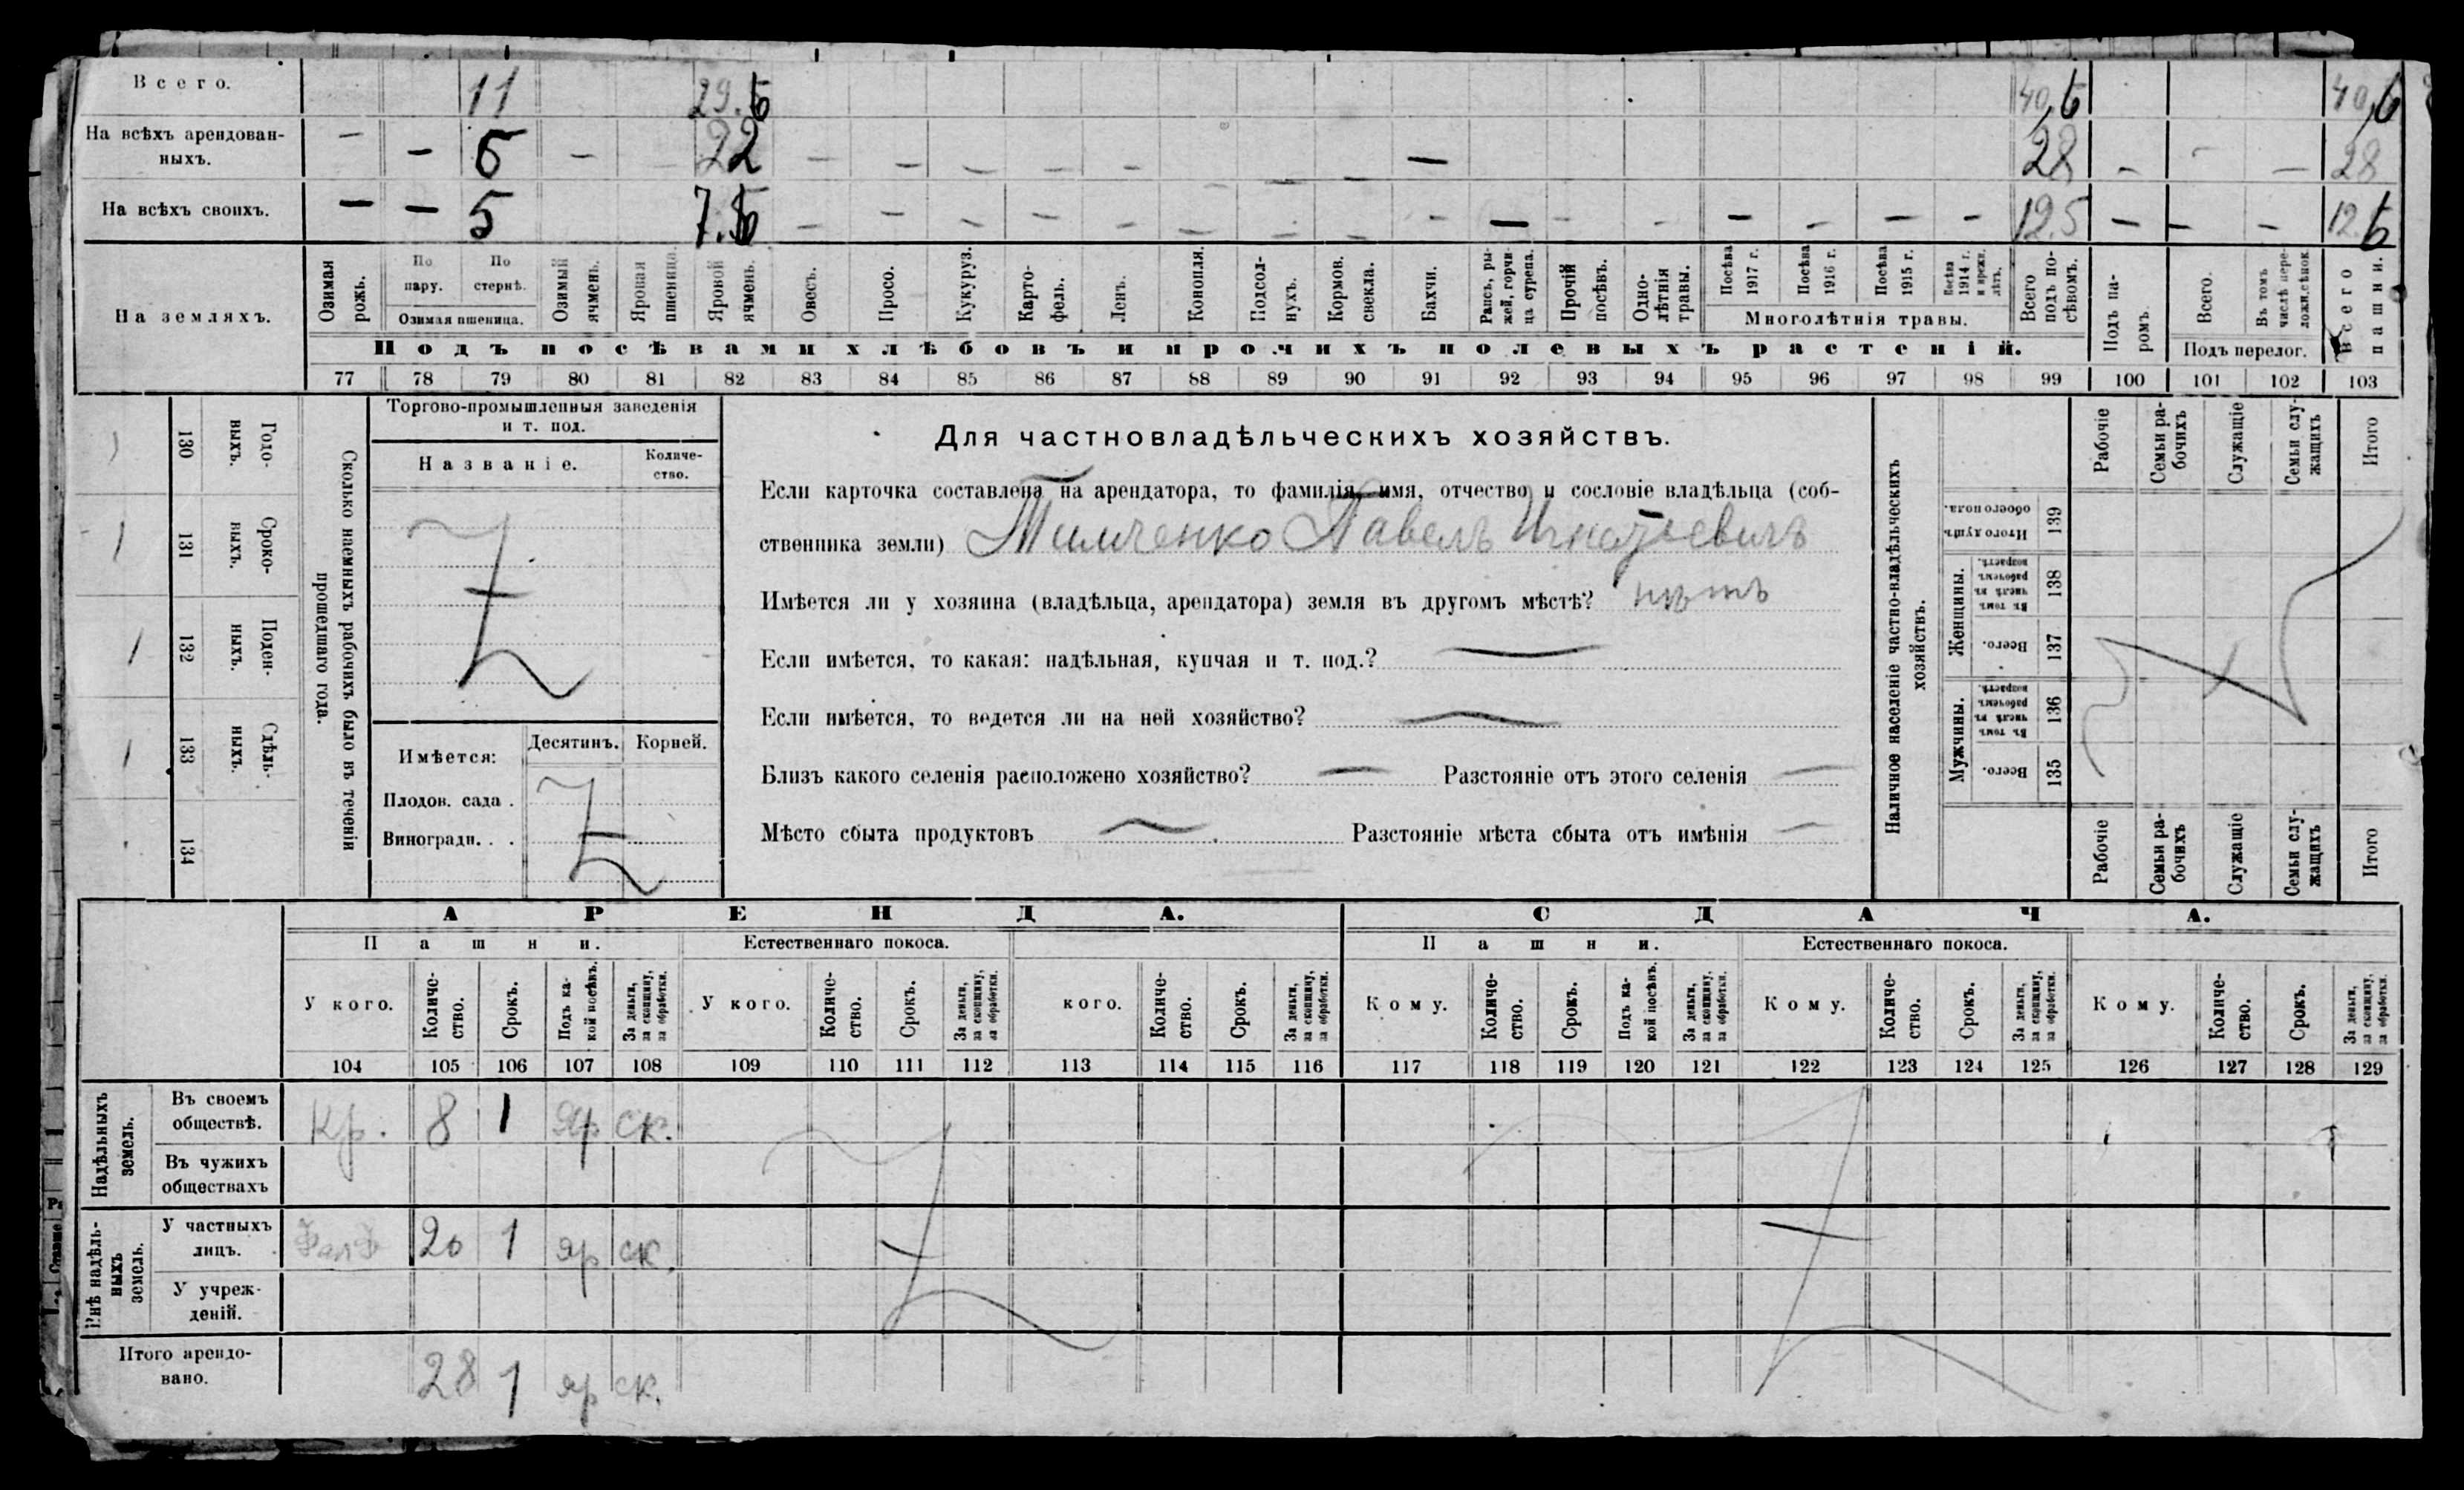 Всего. 11 29.5 40,5 40,5
На всѣхъ арендован-
ныхъ. — — 6 — — 22 — — — — — — — — — 28 — — — 28
На всѣхъ своихъ. — — 5 7.5 — — — — — — — — — — — — — — — — 12.5 — — — 12.5
На земляхъ.
Озимая рожь.
По пару.
По стернѣ.
Озимая пшеница.
Озимый ячмень.
Яровая пшеница.
Яровой ячмень.
Овесъ.
Просо.
Кукуруз.
Карто-
фель.
Ленъ.
Конопля.
Подсол-
нухъ.
Кормов. свекла.
Бахчи.
Рапсъ, ры-
жей, горчи-
ца сурепа.
Прочій посѣвъ.
Одно-
лѣтнія травы.
Посѣва 1917 г.
Посѣва 1916 г.
Посѣва 1915 г.
Посѣва 1914 г. и прежн. лѣтъ.
Многолѣтнія травы.
Всего подъ по-
сѣвомъ.
Подъ па-
ромъ.
Всего.
Въ томъ числѣ пере-
ложи,сѣнок.
Подъ перелог.
Всего пашни.
Подъ посѣвами хлѣбовъ и прочихъ полевыхъ растеній.
77 78 79 80 81 82 83 84 85 86 87 88 89 90 91 92 93 94 95 96 97 98 99 100 101 102 103
Сколько наемныхъ рабочихъ было въ теченіи
прошедшаго года.
Годо-
выхъ. 130
Сроко-
выхъ. 131
Поден-
ныхъ. 132
Сдѣль-
ныхъ. 133
134
Торгово-промышленныя заведенія
и т. под.
Названіе. Количе-
ство.
Имѣется: Десятинъ. Корней.
Плодов. сада .
Виноградн. . .
Для частновладѣльческихъ хозяйствъ.
Если карточка составлена на арендатора, то фамилія, имя, отчество и сословіе владѣльца (соб-
ственника земли) Тимченко Павелъ Игнатьевичъ
Имѣется ли у хозяина (владѣльца, арендатора) земля въ другомъ мѣстѣ? нѣтъ
Если имѣется, то какая: надѣльная, купчая и т. под.? —
Если имѣется, то ведется ли на ней хозяйство? —
Близъ какого селенія расположено хозяйство? — Разстояніе отъ этого селенія —
Мѣсто сбыта продуктовъ — Разстояніе мѣста сбыта отъ имѣнія —
Наличное населеніе частно-владѣльческихъ
хозяйствъ.
Рабочіе
Семьи ра-
бочихъ
Служащіе
Семьи слу-
жащихъ
Итого
Итого душъ обоего пола. 139
Женщины.
Въ томъ числѣ въ рабочемъ возрастѣ. 138
Всего. 137
Мужчины.
Въ томъ числѣ въ рабочемъ возрастѣ. 136
Всего. 135
Рабочіе
Семьи ра-
бочихъ
Служащіе
Семьи слу-
жащихъ
Итого
АРЕНДА. СДАЧА.
Пашни. Естественнаго покоса. Пашни. Естественнаго покоса.
У кого. Количе-
ство. Срокъ. Подъ ка-
кой посѣвъ. За деньги, за скопщину, за обработки.
У кого. Количе-
ство. Срокъ. За деньги, за скопщину, за обработки.
кого. Количе-
ство. Срокъ. За деньги, за скопщину, за обработки.
Кому. Количе-
ство. Срокъ. Подъ ка-
кой посѣвъ. За деньги, за скопщину, за обработки.
Кому. Количе-
ство. Срокъ. За деньги, за скопщину, за обработки.
Кому. Количе-
ство. Срокъ. За деньги, за скопщину, за обработки.
104 105 106 107 108 109 110 111 112 113 114 115 116 117 118 119 120 121 122 123 124 125 126 127 128 129
Надѣльныхъ земель.
Въ своемъ
обществѣ. Кр. 8 1 яр ск.
Въ чужихъ
обществахъ
Внѣ надѣль-
ныхъ земель.
У частныхъ
лицъ. 20 1 яр ск.
У учреж-
деній.
Итого арендо-
вано. 28 1 яр ск.